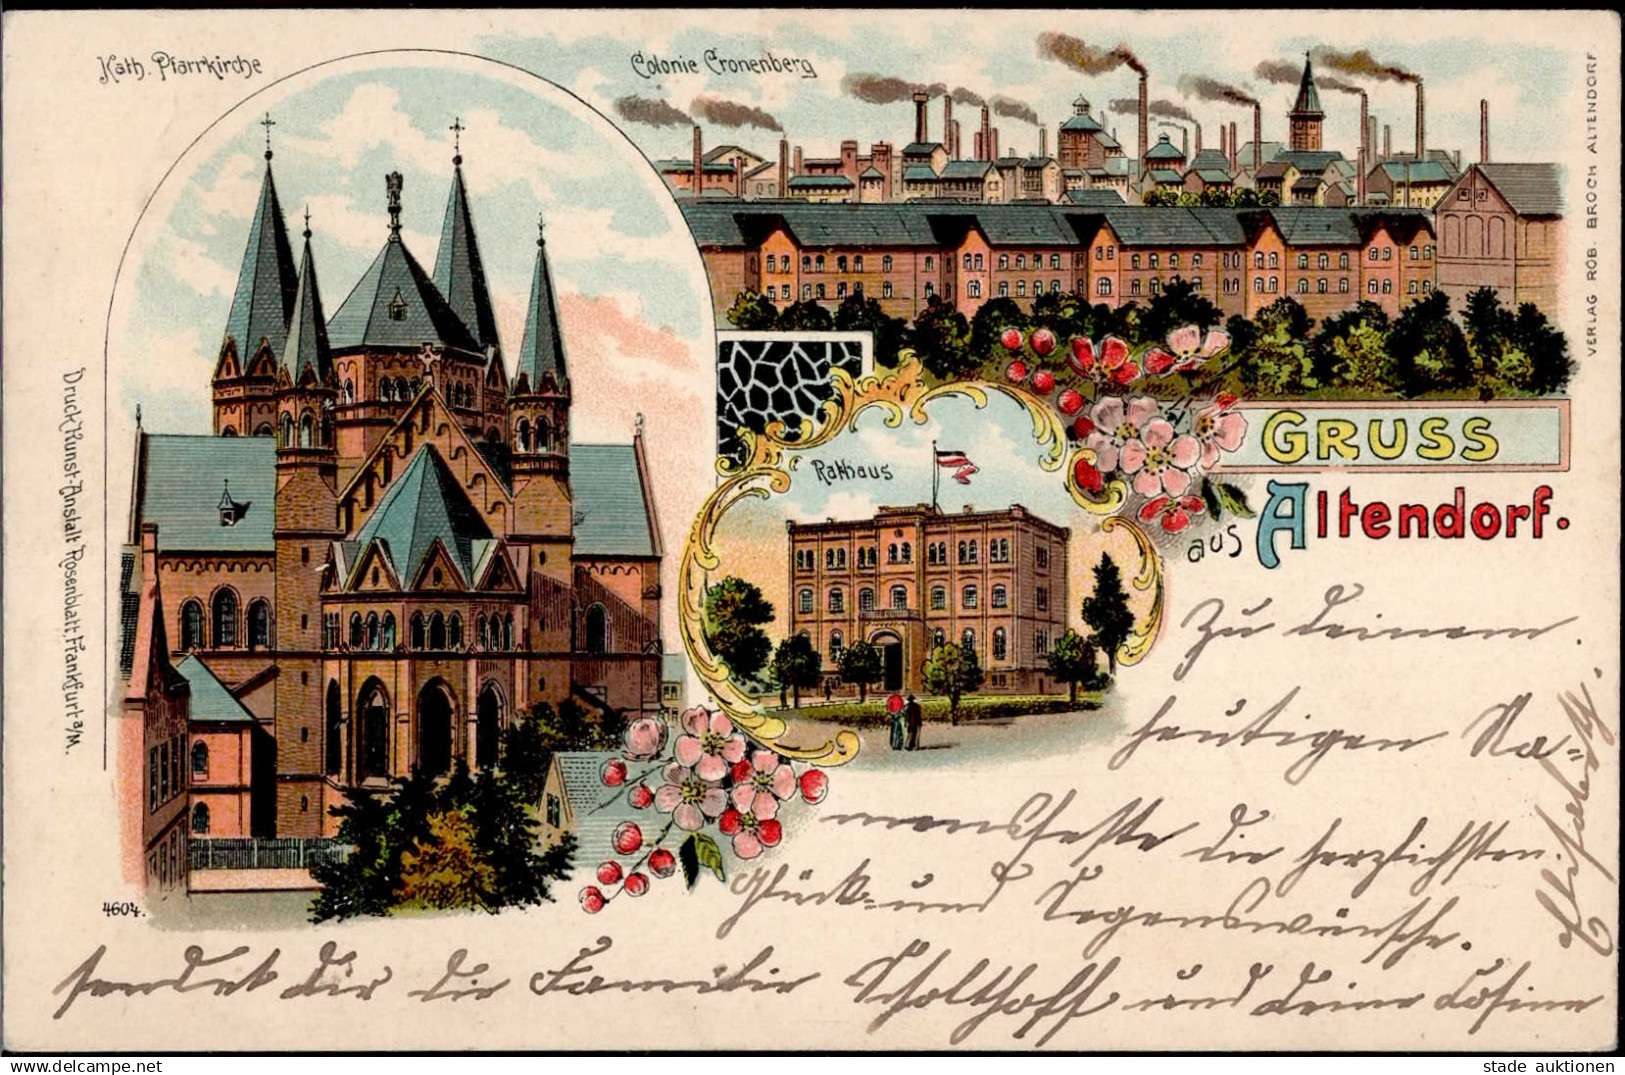 Kath. Pfarrkirche
Colonie Cronenberg
VERLAG ROB. BROCH ALTENDORF
Rathaus
GRUSS
aus Altendorf.
Druck Kunst-Anstalt Rosenblatt, Frankfurt a/M.
4604.
Zu deinem
heutigen Na=
mensfeste die herzlichsten
Glück= und Segenswünsche.
sendet dir die Familie Scholthoff und deine Cosine
Elisabeth.
stade auktionen